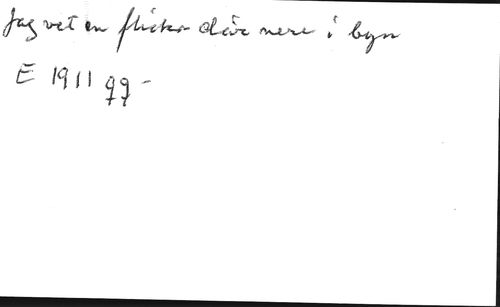 Jag vet en flicka där nere i byn
E 1911 99 -